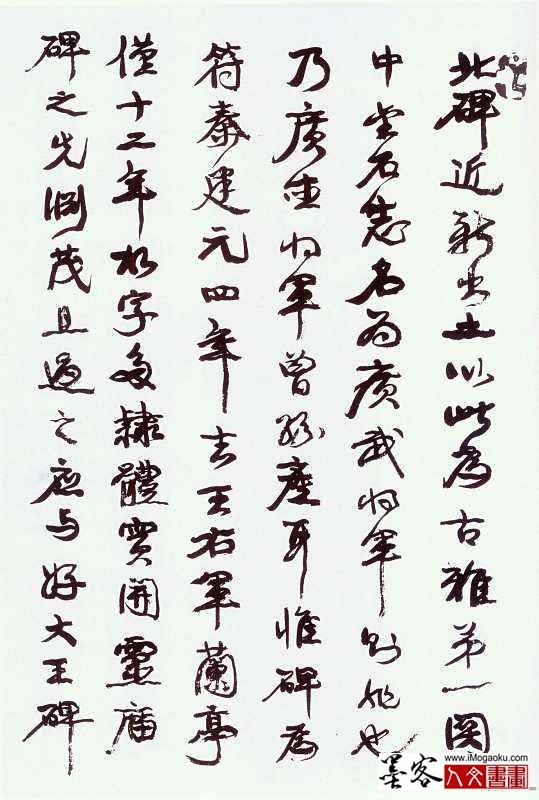 北碑近新出土以此為古雅第一関
中金石志名为廣武将軍則非也
乃廣将軍曾孫產耳惟碑為
符秦建元四年去王右軍蘭亭
僅十二年於字多隸體實開靈廟
碑之先渊茂且過之應与好大王碑
www.iMogaoku.com
墨客 人文書畫